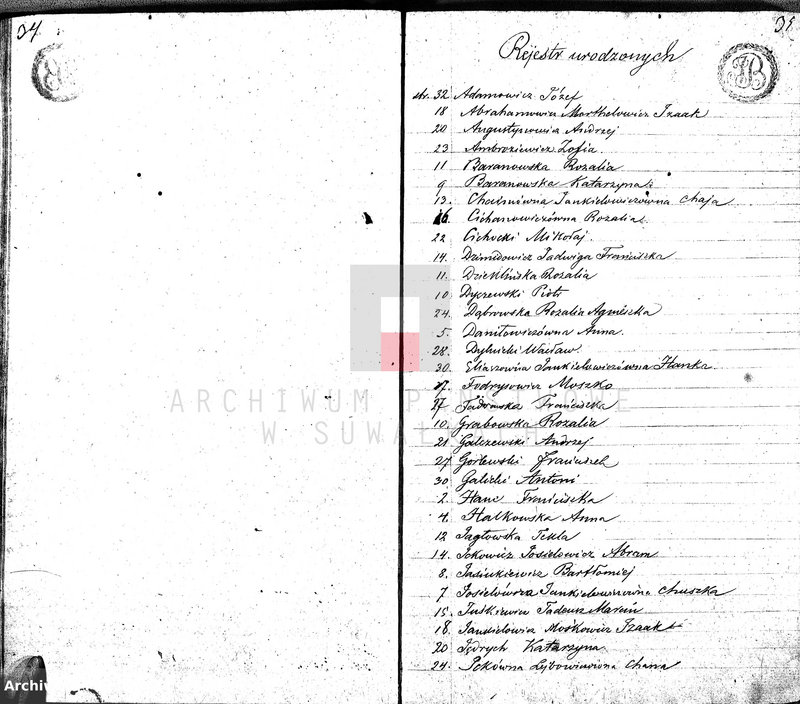 34
35
Rejestr urodzonych
str. 32 Adamowicz Józef
18 Abrahamowicz Morthelowicz Izaak
20 Augustynowicz Andrzej
23 Ambroziewicz Zofia
11 Baranowska Rozalia
9 Baranowska Katarzyna
13. Jankielowiczówna Chaja
16 Cichanowiczówna Rozalia
22 Cichocki Mikołaj.
14. Jadwiga Franciszka
11. Rozalia
10 Dyszewski Piotr
24. Dąbrowska Rozalia Agnieszka
5. Daniłowiczówna Anna.
28. Wacław
30. Eliaszówna Jankielowiczówna Hanka.
17. Fodrysowicz Moszko
27 Franciszka
10. Grabowska Rozalia
21 Galczewski Andrzej
27 Gorlewski Franciszek
30 Galicki Antoni
2. Hanc Franciszka
4. Halkowska Anna
12 Jagłowska Tekla
14. Ickowicz Josielowicz Abram
8. Jasiukiewicz Bartłomiej
7 Josielówna Jankielowiczówna Chuszka
15. Juśkiewicz Tadeusz Marcin
18. Jankielowicz Moskowicz Izaak
20 Jędrych Katarzyna
24. Ickówna Lejbowiczówna Chana
ARCHIWUM PAŃSTWOWE
W SUWAŁKACH
Archiw